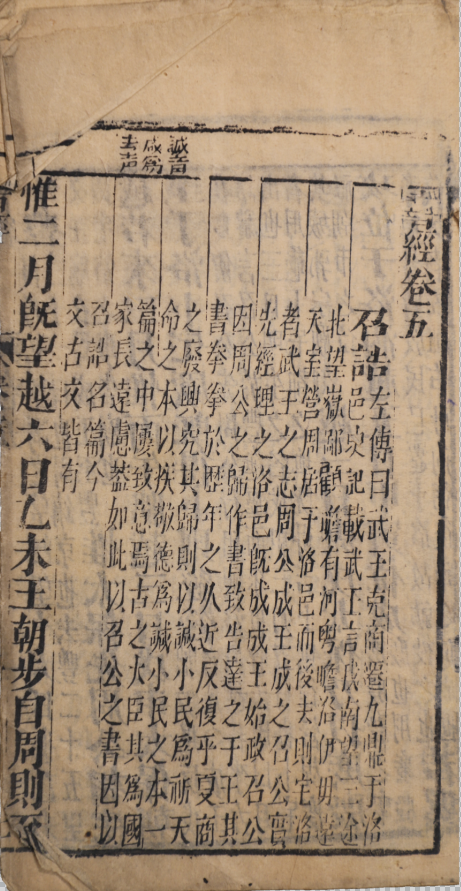 書經卷五
召誥左傳曰武王克商遷九鼎于洛
邑史記載武王言我南望三途
北望嶽鄙顧瞻有河粵瞻洛伊毋遠
天室營周居于洛邑而後去則宅洛
者武王之志周公成王成之召公實
先經理之洛邑既成成王始政召公
因周公之歸作書致告達之于王其
書拳拳於歷年之久近反復乎夏商
之廢興究其歸則以諴小民為祈天
命之本以疾敬德為諴小民之本一
篇之中屢致意焉古之大臣其為國
家長遠慮蓋如此以召公之書因以
召誥名篇今
文古文皆有
諴音
咸為
去声
惟二月既望越六日乙未王朝步自周則至